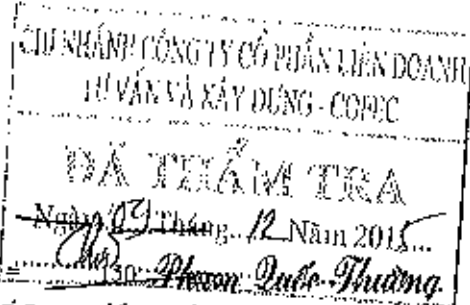 CHI NHÁNH CÔNG TY CỔ PHẦN LIÊN DOANH
TƯ VẤN VÀ XÂY DỰNG - COPEC
ĐÃ THẨM TRA
Ngày 09 Tháng 12 Năm 2015
= 130 Quốc Thường